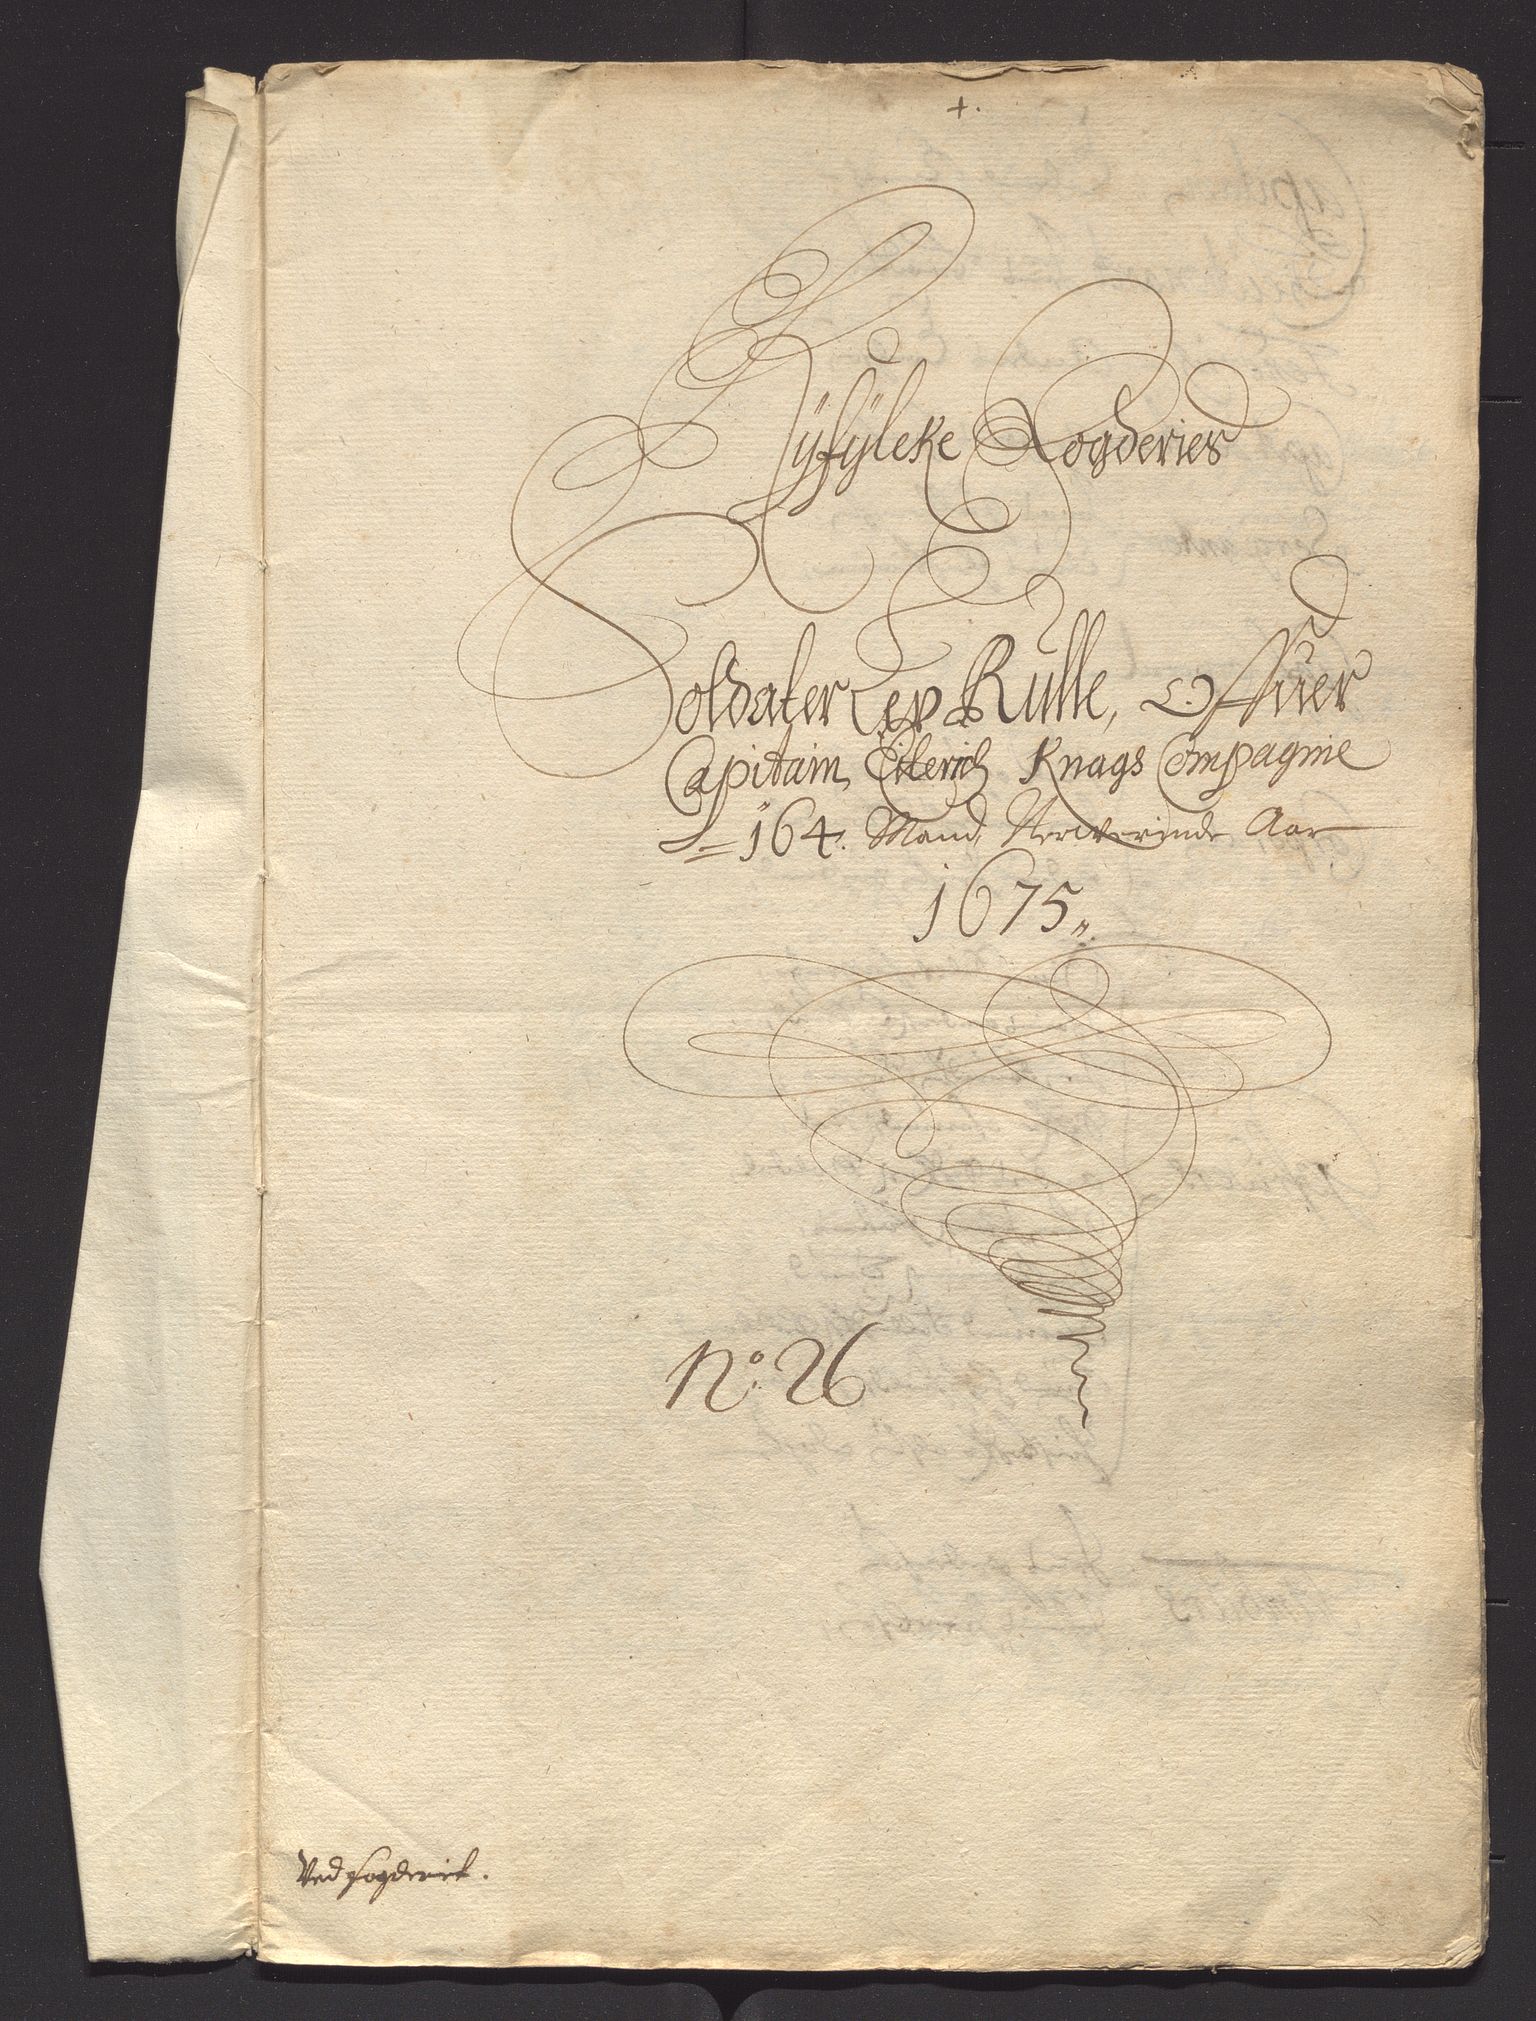 +.
Ryfylcke Fogderies
Soldater Rulle, Offuer
Capitain Knags Compagnie
164. Mand, Nerwerende Aar
1675.
No: 26
Ved fogderiet.